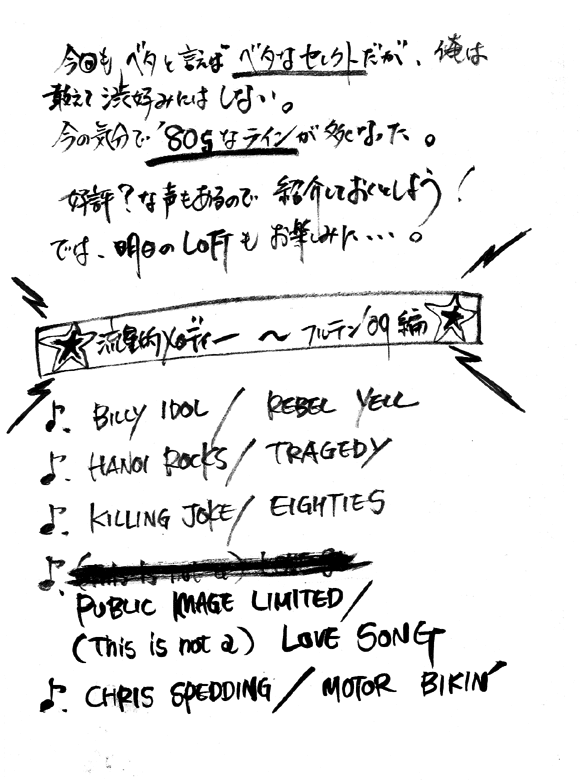 今回も ベタと言えば ベタなセレクトだが、俺は
敢えて渋好みにはしない。
今の気分で '80sなラインが多くなった。
好評?な声もあるので 紹介しておくとしよう!
では、明日のLOFTもお楽しみに・・・。
流星的メロディー 〜 フルテン'09編
♪. BILLY IDOL / REBEL YELL
♪. HANOI ROCKS / TRAGEDY
♪. KILLING JOKE / EIGHTIES
♪.
PUBLIC IMAGE LIMITED /
(This is not a) LOVE SONG
♪. CHRIS SPEDDING / MOTOR BIKIN'